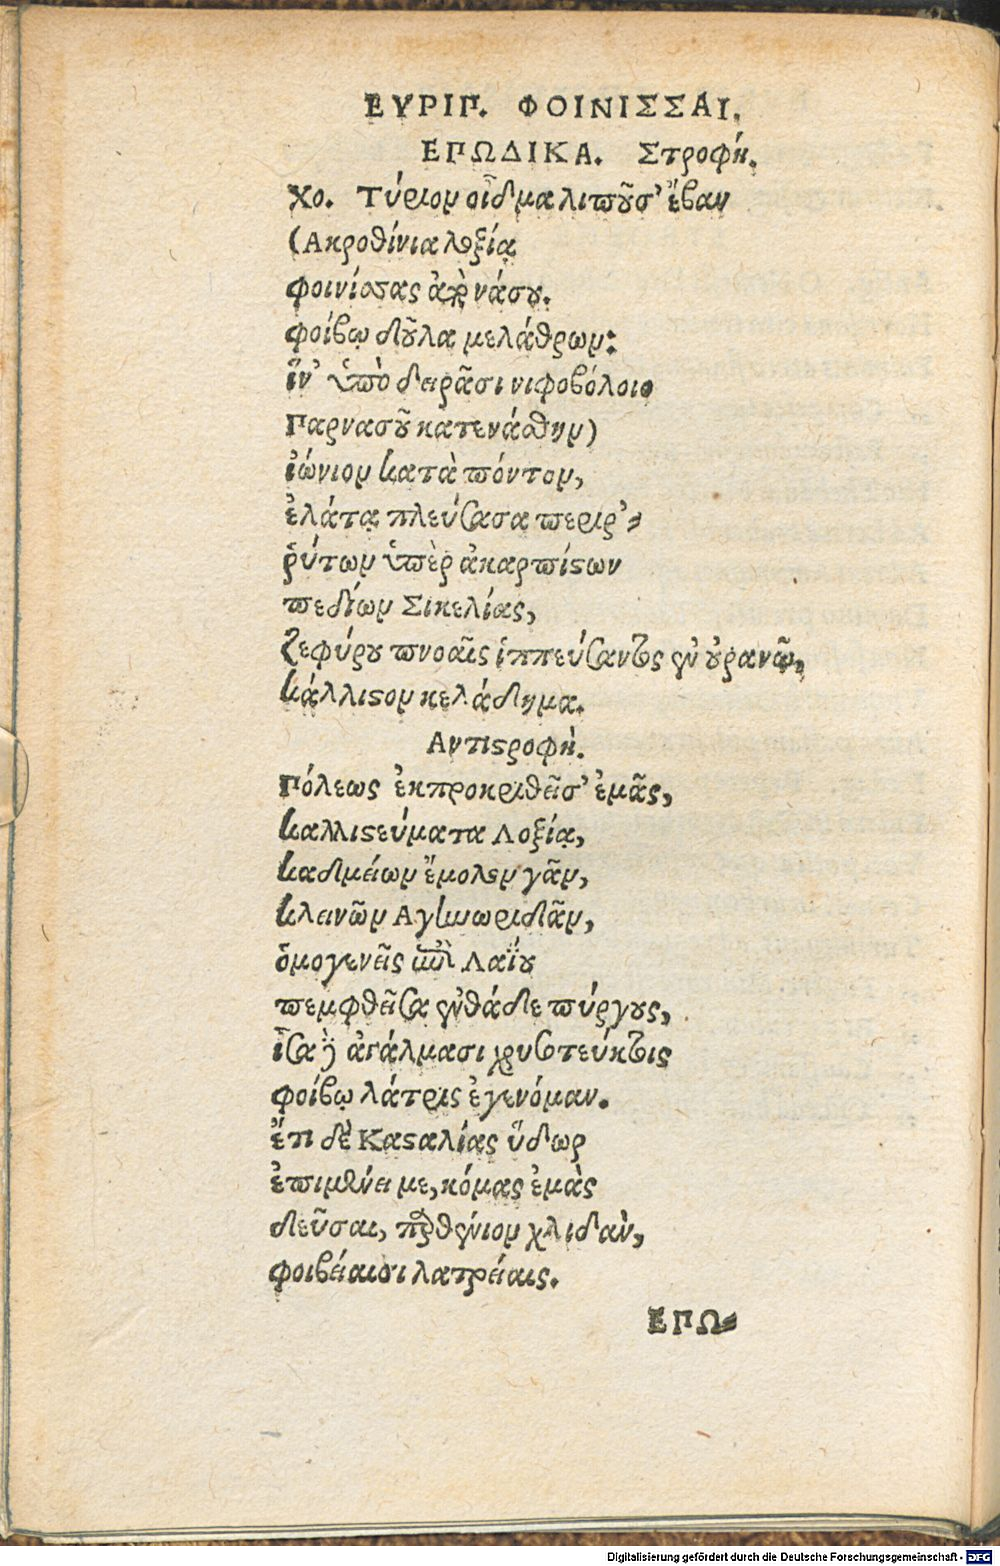 ΕΥΡΙΠ. ΦΟΙΝΙΣΣΑΙ.
ΕΠΩΔΙΚΑ. Στροφή.
Χο. Τύριον οἶδμα λιποῦσ' ἔβαν
(Ἀκροθίνια λοξίᾳ
φοινίσσας ἀπὸ νάσου.
φοίβῳ δοῦλα μελάθρων:
ἵν' ὑπὸ δειρᾶσι νιφοβόλοις
Παρνασοῦ κατενάσθην)
ἰώνιον κατὰ πόντον,
ἐλάτᾳ πλεύσασα περιῤ-
ῥύτων ὑπὲρ ἀκαρπίστων
πεδίων Σικελίας,
ζεφύρου πνοαῖς ἱππεύσαντος ἐν οὐρανῷ,
κάλλιστον κελάδημα.
Αντιστροφή.
Πόλεως ἐκπροκριθεῖσ' ἐμᾶς,
καλλιστεύματα Λοξίᾳ,
καδμείων ἔμολον γᾶν,
κλεινῶν Αγηνοριδᾶν,
ὁμογενεῖς ἐπὶ Λαΐου
πεμφθεῖσα ἐνθάδε πύργους,
ἶσα δ' ἀγάλμασι χρυσοτεύκτοις
φοίβῳ λάτρις ἐγενόμαν.
ἔτι δὲ Κασταλίας ὕδωρ
ἐπιμένει με, κόμας ἐμὰς
δεῦσαι, παρθένιον χλιδὰν,
φοιβείαισι λατρείαις.
ΕΠΩ-
Digitalisierung gefördert durch die Deutsche Forschungsgemeinschaft - DFG